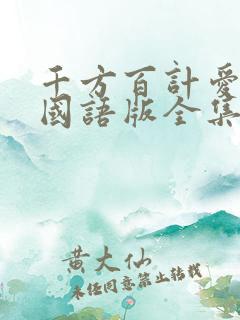 千方百計愛
國語版全集
黄大仙
未经同意禁止转载